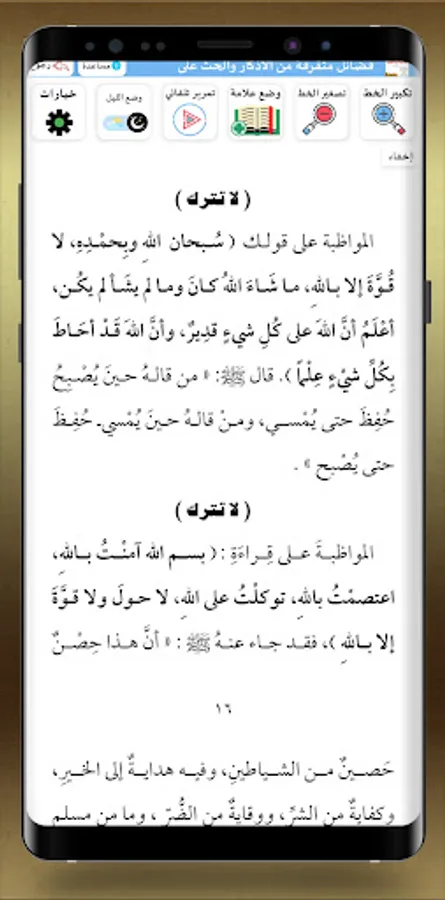 فضائل متفرقة من الأذكار والحث على
مساعدة
تكبير الخط
تصغير الخط
وضع علامة
تمرير تلقائي
وضع الليل
خيارات
إخفاء
( لا تترك )
المواظبة على قولك ( سُبحان اللهِ وبِحمْدِهِ، لا
قُوَّةَ إلا باللهِ، ما شَاءَ اللهُ كانَ وما لم يشَأ لم يكُن،
أعْلَمُ أنَّ اللهَ على كُلِ شيءٍ قدِيرٌ، وأنَّ اللهَ قَدْ أحَاطَ
بِكُلِّ شيْءٍ عِلْماً ). قال ﷺ: « من قالهُ حينَ يُصْبِحُ
حُفِظَ حتى يُمْسي، ومنْ قالهُ حينَ يُمْسي. حُفِظَ
حتى يُصْبح » .
( لا تترك )
المواظبةَ على قِراءَةِ : ( بسم الله آمنْتُ باللهِ،
اعتصمْتُ باللهِ، توكلْتُ على اللهِ، لا حولَ ولا قوَّةَ
إلا باللهِ )، فقد جاء عنهُ ﷺ : « أنَّ هذا حِصْنٌ
١٦
حَصينٌ من الشياطينِ، وفيه هدايةٌ إلى الخيرِ،
وكفايةٌ من الشرِّ، ووقايةٌ من الضُّرّ ، وما من مسلم